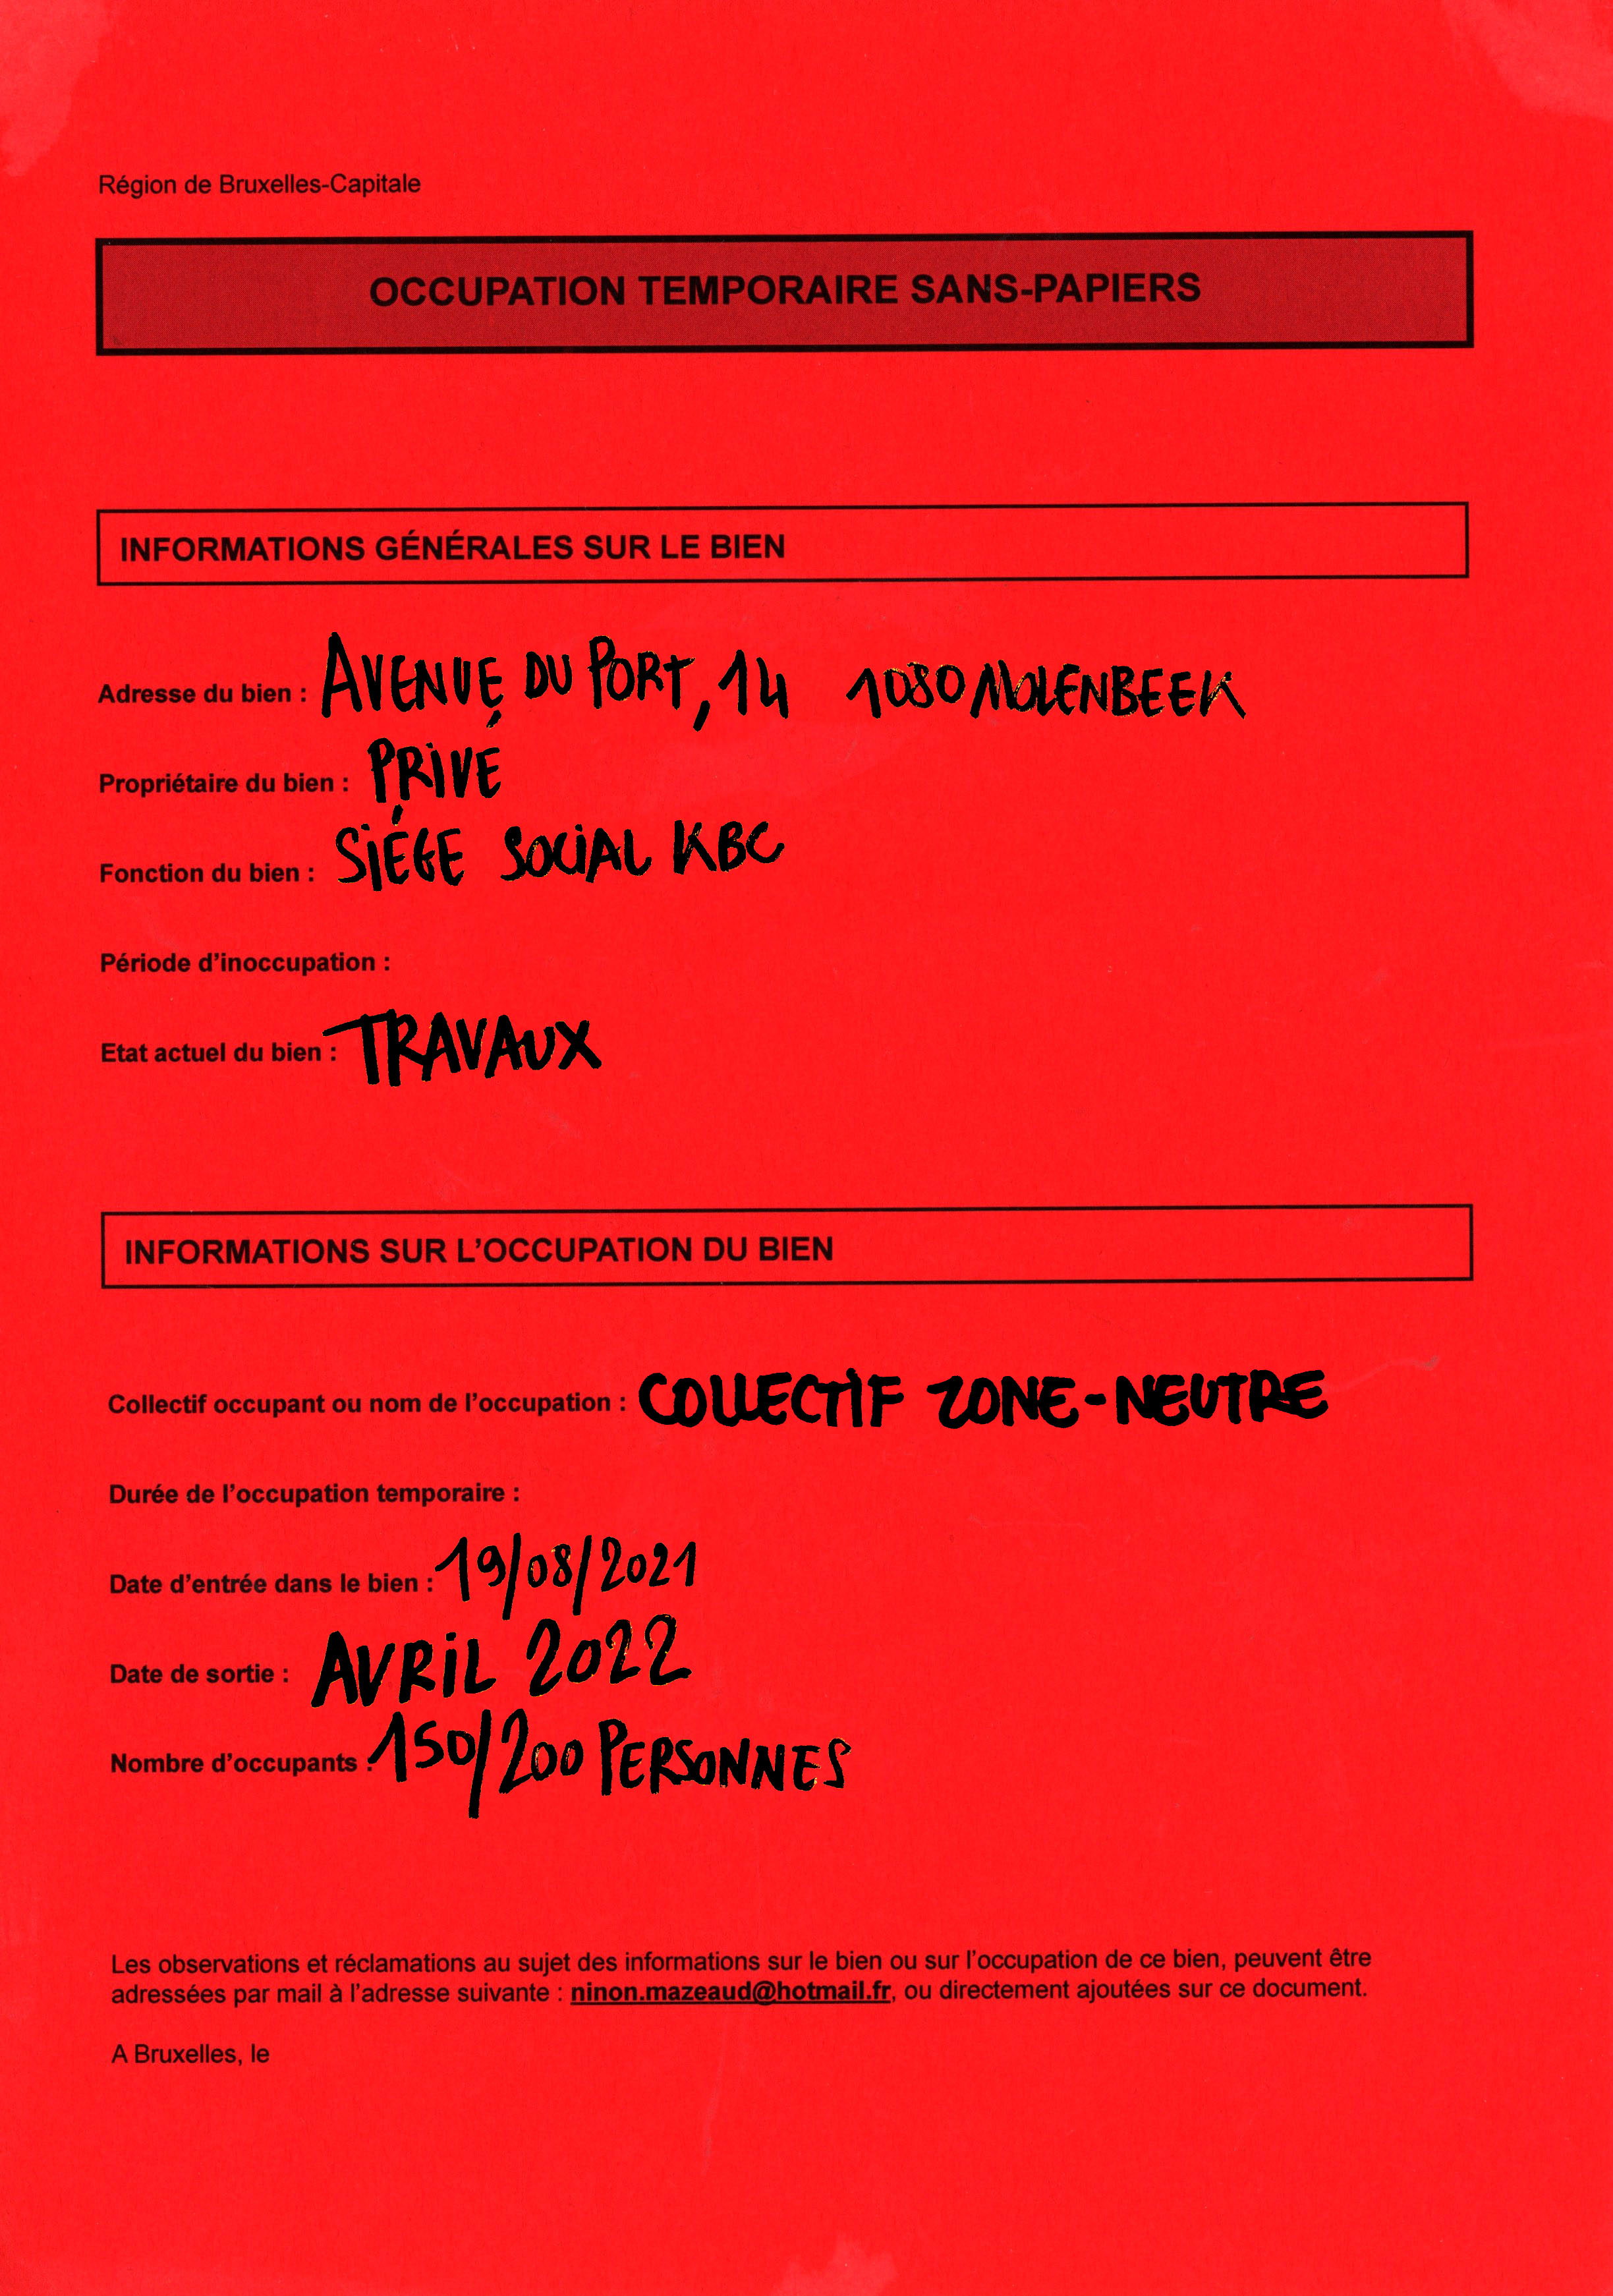 Région de Bruxelles-Capitale
OCCUPATION TEMPORAIRE SANS-PAPIERS
INFORMATIONS GÉNÉRALES SUR LE BIEN
Adresse du bien : AVENUE DU PORT, 14 1080 MOLENBEEK
Propriétaire du bien : PRIVÉ
Fonction du bien : SIÉGE SOCIAL KBC
Période d'inoccupation :
Etat actuel du bien : TRAVAUX
INFORMATIONS SUR L'OCCUPATION DU BIEN
Collectif occupant ou nom de l'occupation : COLLECTIF ZONE-NEUTRE
Durée de l'occupation temporaire :
Date d'entrée dans le bien : 19/08/2021
Date de sortie : AVRIL 2022
Nombre d'occupants : 150/200 PERSONNES
Les observations et réclamations au sujet des informations sur le bien ou sur l'occupation de ce bien, peuvent être
adressées par mail à l'adresse suivante : ninon.mazeaud@hotmail.fr, ou directement ajoutées sur ce document.
A Bruxelles, le